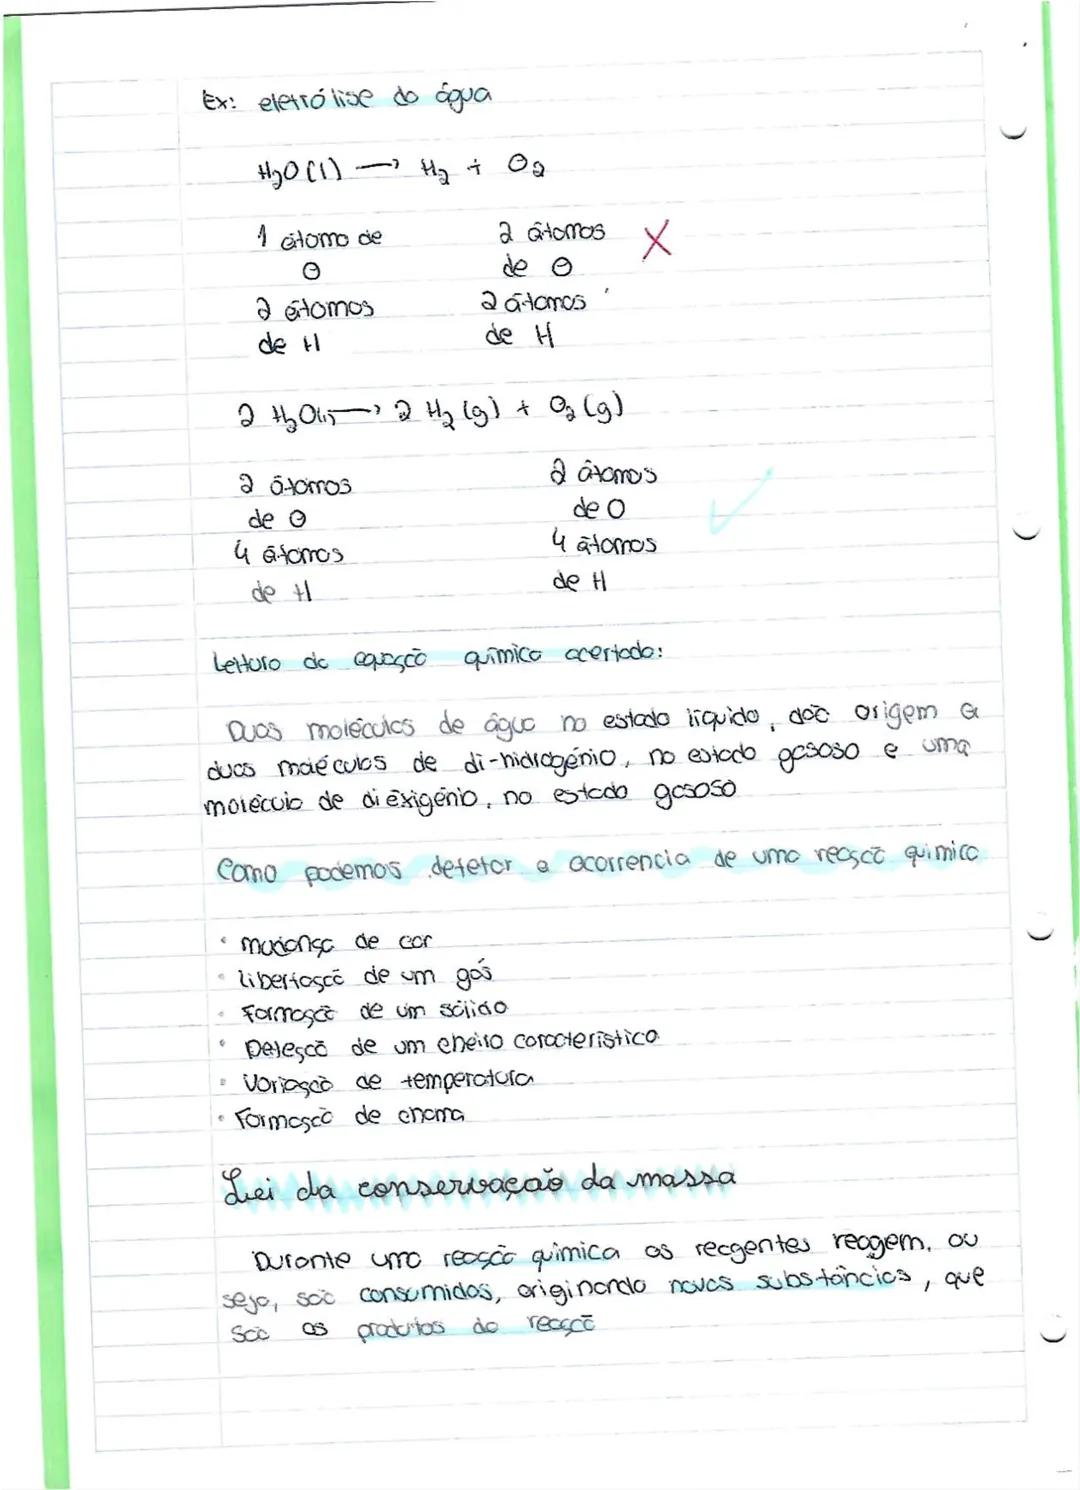 Ex: eletrólise da água
H₂O(l) → H₂ + O₂
1 átomo de 2 átomos X
O de O
2 átomos 2 átomos
de H de H
2 H₂O(l) → 2 H₂ (g) + O₂ (g)
2 átomos 2 átomos
de O de O
4 átomos 4 átomos
de H de H
Leitura da equação química acertada:
Duas moléculas de água no estado líquido, dão origem a
duas moléculas de di-hidrogénio, no estado gasoso e uma
molécula de dióxigénio, no estado gasoso
Como podemos detetar a ocorrencia de uma reação química
• mudança de cor
• libertação de um gás
• Formação de um sólido
• Deteção de um cheiro característico
• Variação de temperatura
• Formação de chama
Lei da conservação da massa
Durante uma reação química os reagentes reagem, ou
seja, são consumidos, originando novas substâncias, que
são os produtos da reação